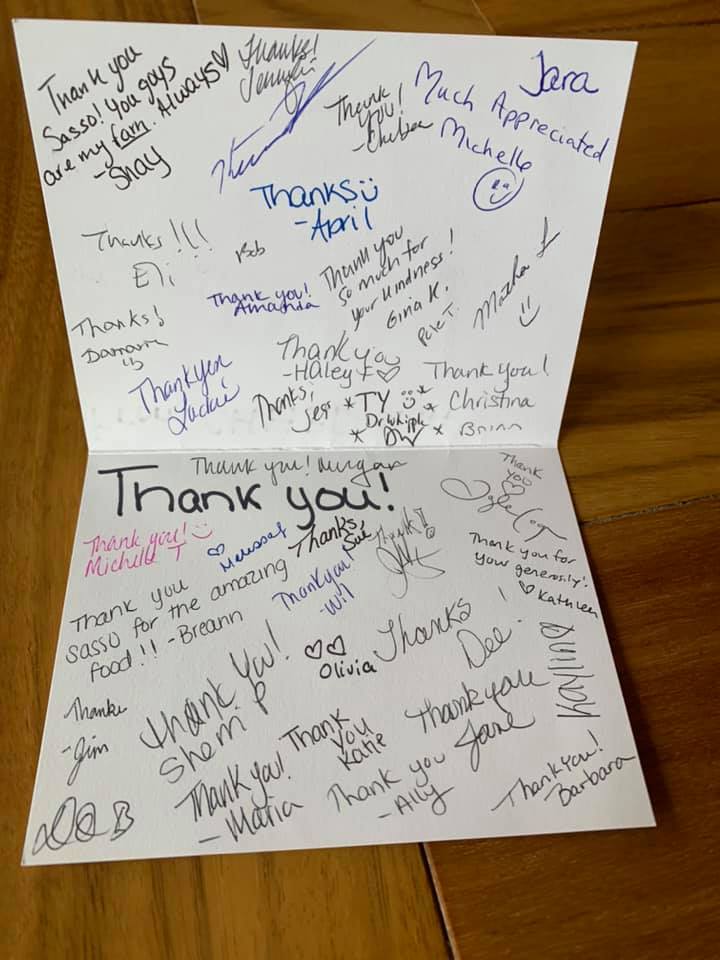 Thank you
Sasso! You guys
are my fam. Always♡
-Shay
Thanks!
Thank
you!
-Chelsea
Jara
Much Appreciated
Michelle
Thanks
-April
Thanks!!!
Eli
Bob
Thank you!
Amanda
Thank you
so much for
your kindness!
Gina K.
Pete T.
Thanks!
Thank you
-Haley F♡
Thank you!
Christina
Thank you
Thanks,
Jess
*TY
Dr Whipple
* DW *
Brinn
Thank you! Morgan
Thank you!
Thank
you
Thank you!
Michelle T
♡ Melissa
Thanks
Sue
Thank you for
your generosity!
♡ Kathleen
Thank you
Sasso for the amazing
food!! -Breann
Thank you!
-Wil
♡♡
Olivia
Thanks!
Dee.
Kaylina
Thanks
-Jim
Thank you!
Sherri P
Thank
you
Katie
Thank you
Jane
Thank you!
-Maria
Thank you
-Ally
Thank you!
-Barbara